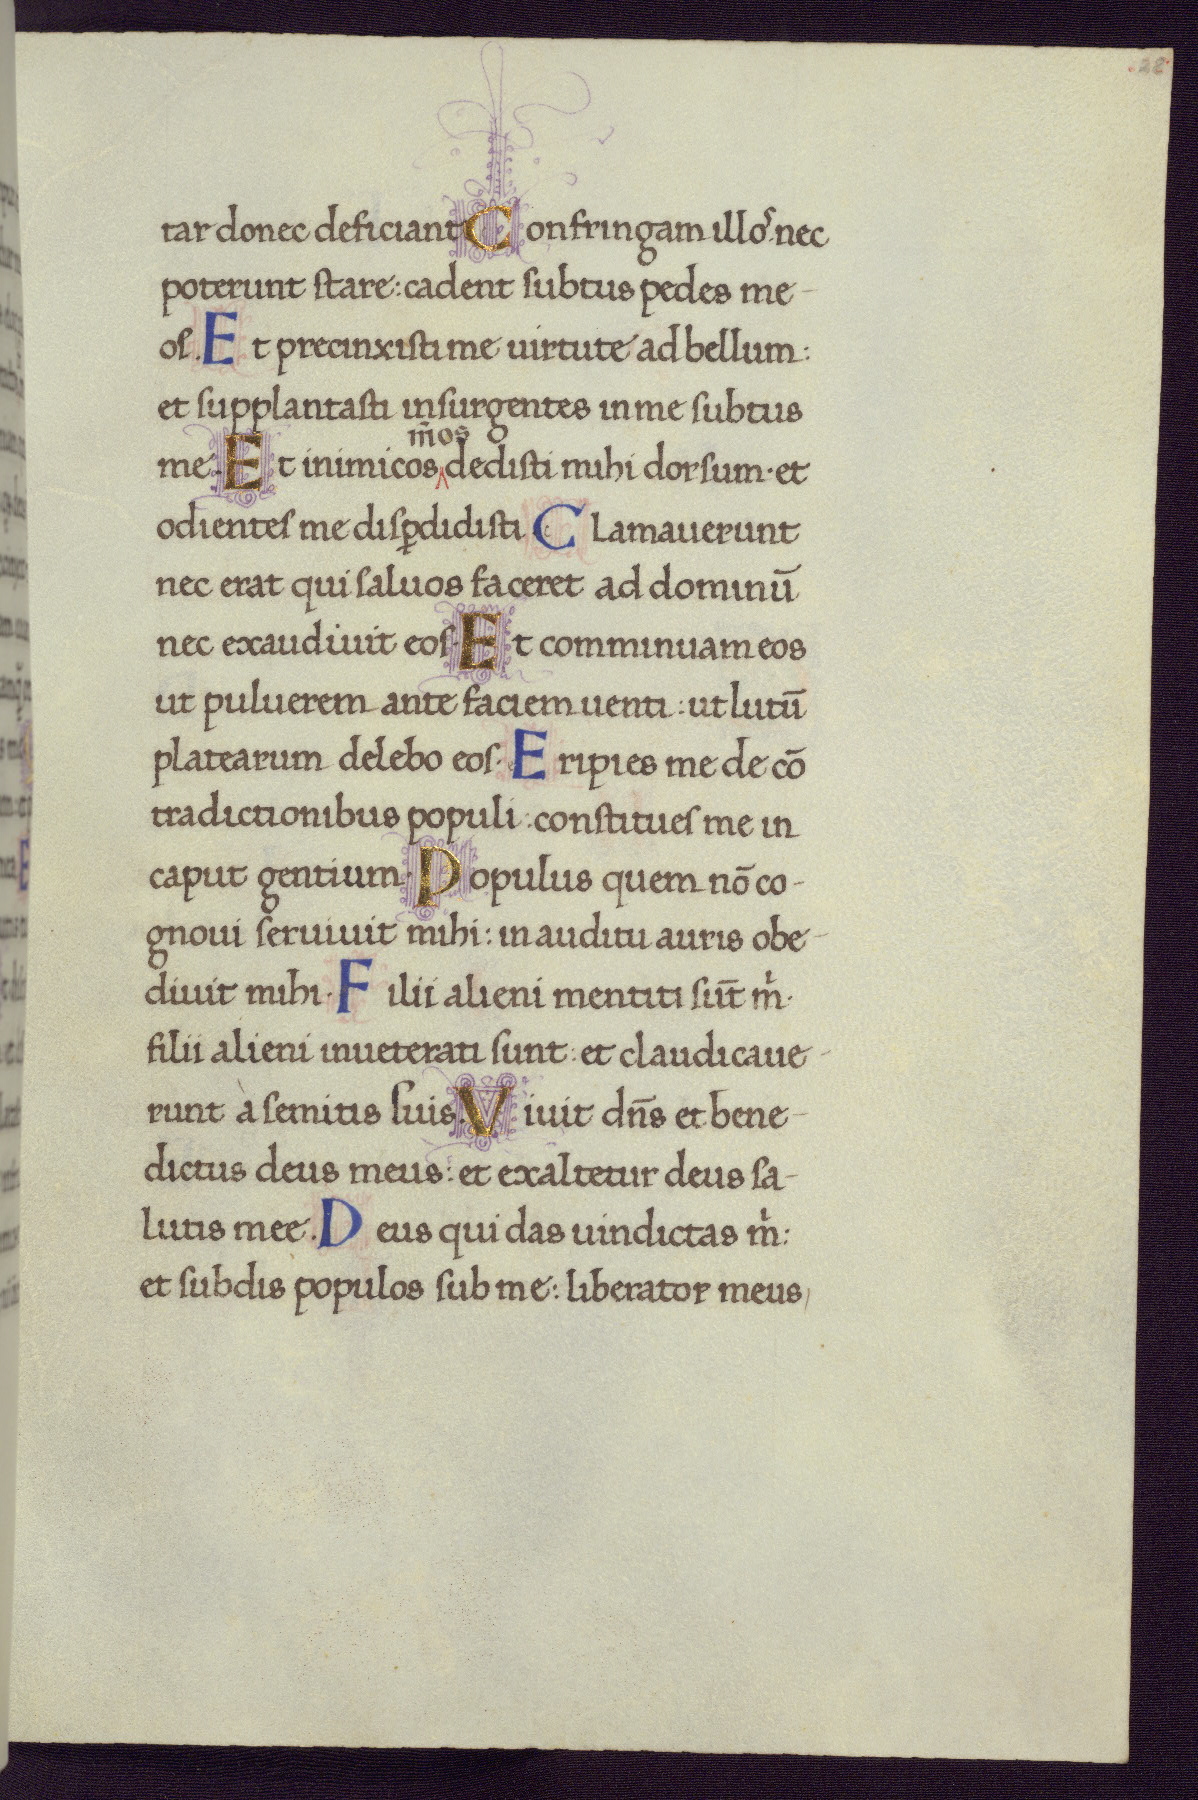 28
tar donec deficiant Confringam illos. nec
poterunt stare: cadent subtus pedes me-
os. Et precinxisti me uirtute ad bellum:
et supplantasti insurgentes in me subtus
m̄os
me. Et inimicos dedisti mihi dorsum· et
odientes me disꝑdidisti. Clamauerunt
nec erat qui saluos faceret ad dominū
nec exaudiuit eos· Et comminuam eos
ut puluerem ante faciem uenti: ut lutū
platearum delebo eos· Eripies me de cō
tradictionibus populi: constitues me in
caput gentium· Populus quem nō co-
gnoui seruiuit mihi: in auditu auris obe-
diuit mihi· Filii alieni mentiti sūt m̍·
filii alieni inueterati sunt: et claudicaue-
runt à semitis suis. Viuit dn̄s et bene-
dictus deus meus: et exaltetur deus sa-
lutis mee. Deus qui das uindictas m̍:
et subdis populos sub me: liberator meus